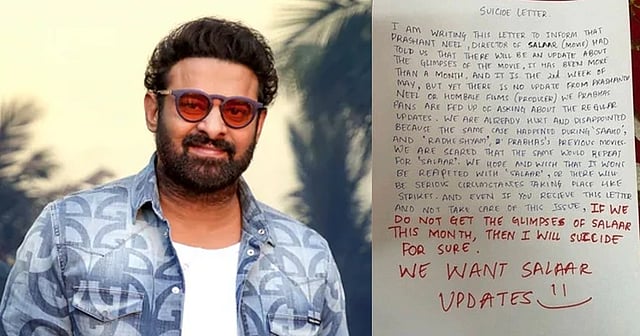 SUICIDE LETTER
I AM WRITING THIS LETTER TO INFORM THAT
PRASHANT NEEL, DIRECTOR OF SALAAR (MOVIE) HAD
TOLD US THAT THERE WILL BE AN UPDATE ABOUT
THE GLIMPSES OF THE MOVIE, IT HAS BEEN MORE
THAN A MONTH, AND IT IS THE 2nd WEEK OF
MAY, BUT YET THERE IS NO UPDATE FROM PRASHANTH
NEEL OR HOMBALE FILMS (PRODUCER) WE PRABHAS
FANS ARE FED UP OF ASKING ABOUT THE REGULAR
UPDATES. WE ARE ALREADY HURT AND DISAPPOINTED
BECAUSE THE SAME CASE HAPPENED DURING 'SAAHO',
AND 'RADHE SHYAM', 2 PRABHAS'S PREVIOUS MOVIES.
WE ARE SCARED THAT THE SAME WOULD REPEAT
FOR 'SALAAR'. WE HOPE AND WISH THAT IT WONT
BE REAPETED WITH 'SALAAR', OR THERE WILL
BE SERIOUS CIRCUMSTANCES TAKING PLACE LIKE
STRIKES. AND EVEN IF YOU RECIEVE THIS LETTER
AND NOT TAKE CARE OF THIS ISSUE, IF WE
DO NOT GET THE GLIMPSES OF SALAAR
THIS MONTH, THEN I WILL SUICIDE
FOR SURE.
WE WANT SALAAR
UPDATES